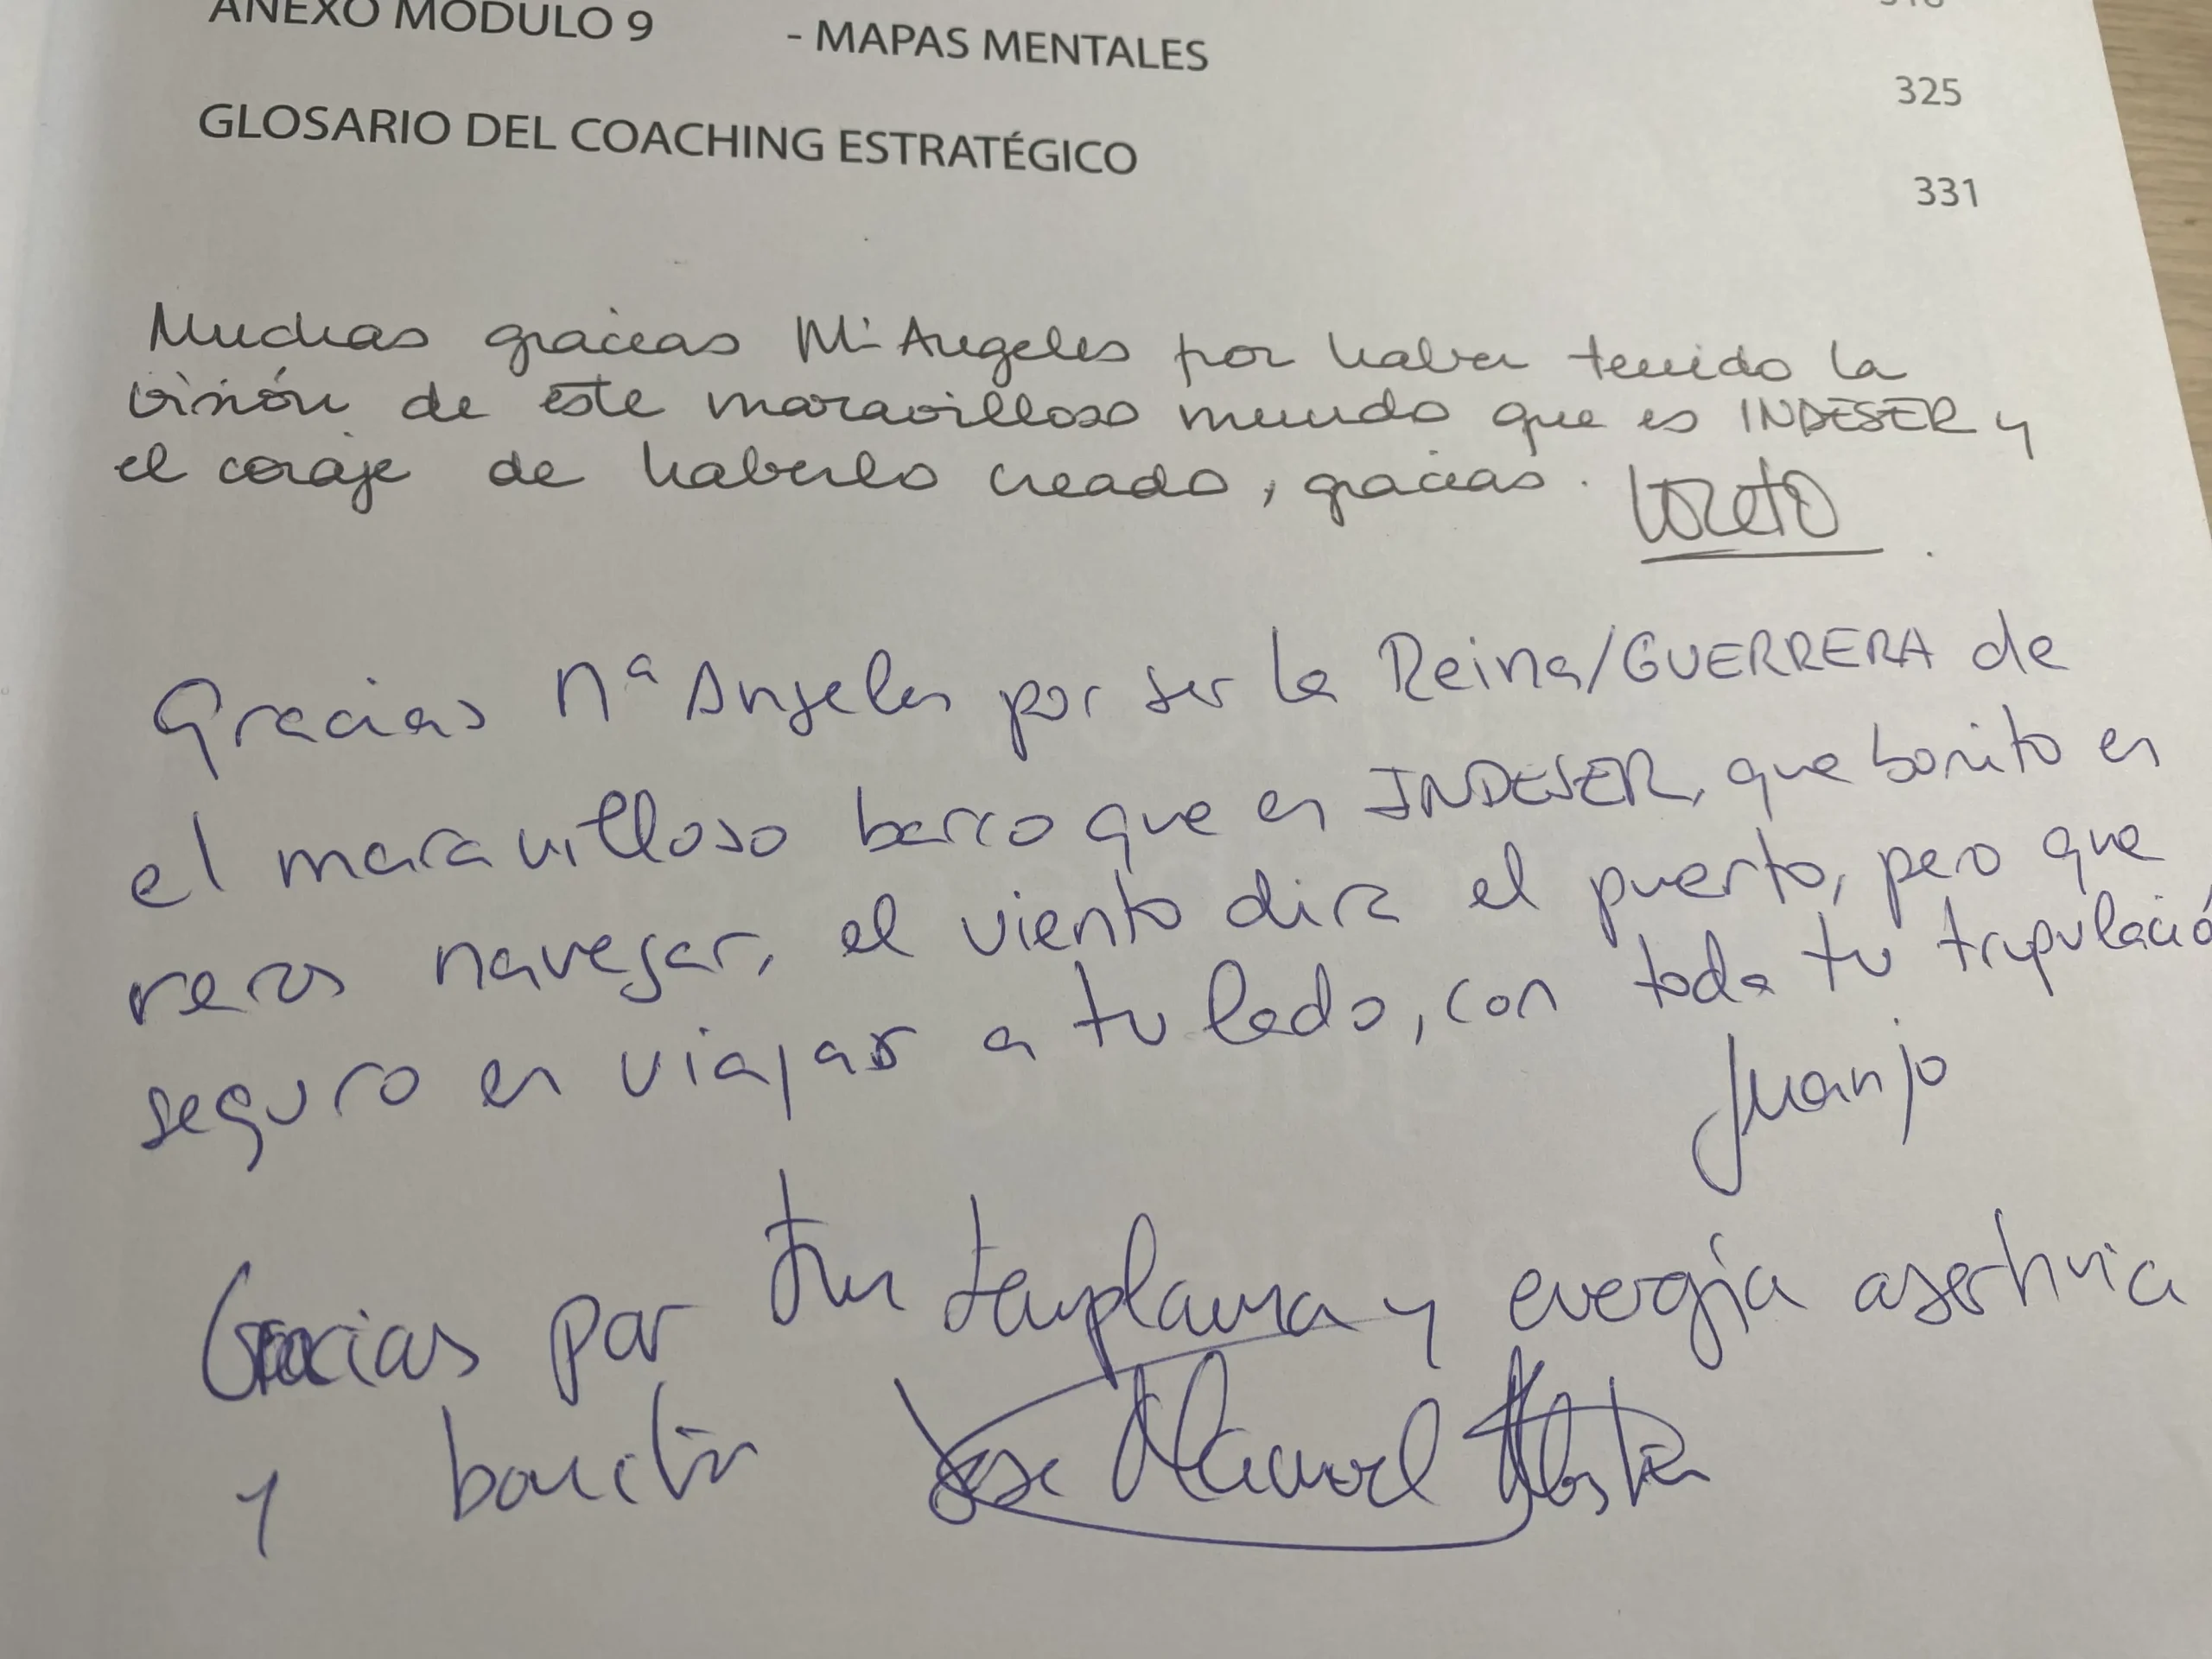 ANEXO MODULO 9 - MAPAS MENTALES
325
GLOSARIO DEL COACHING ESTRATÉGICO
331
Muchas gracias Mª Angeles por haber tenido la
visión de este maravilloso mundo que es INDESER y
el coraje de haberlo creado, gracias. Loreto
Gracias Mª Angeles por ser la Reina/GUERRERA de
el maravilloso barco que es INDESER, que bonito es
navegar, el viento dira el puerto, pero que
seguro es viajar a tu lado, con toda tu tripulació
Juanjo
Gracias por tu templanza y energía asertiva
y Jose Manuel